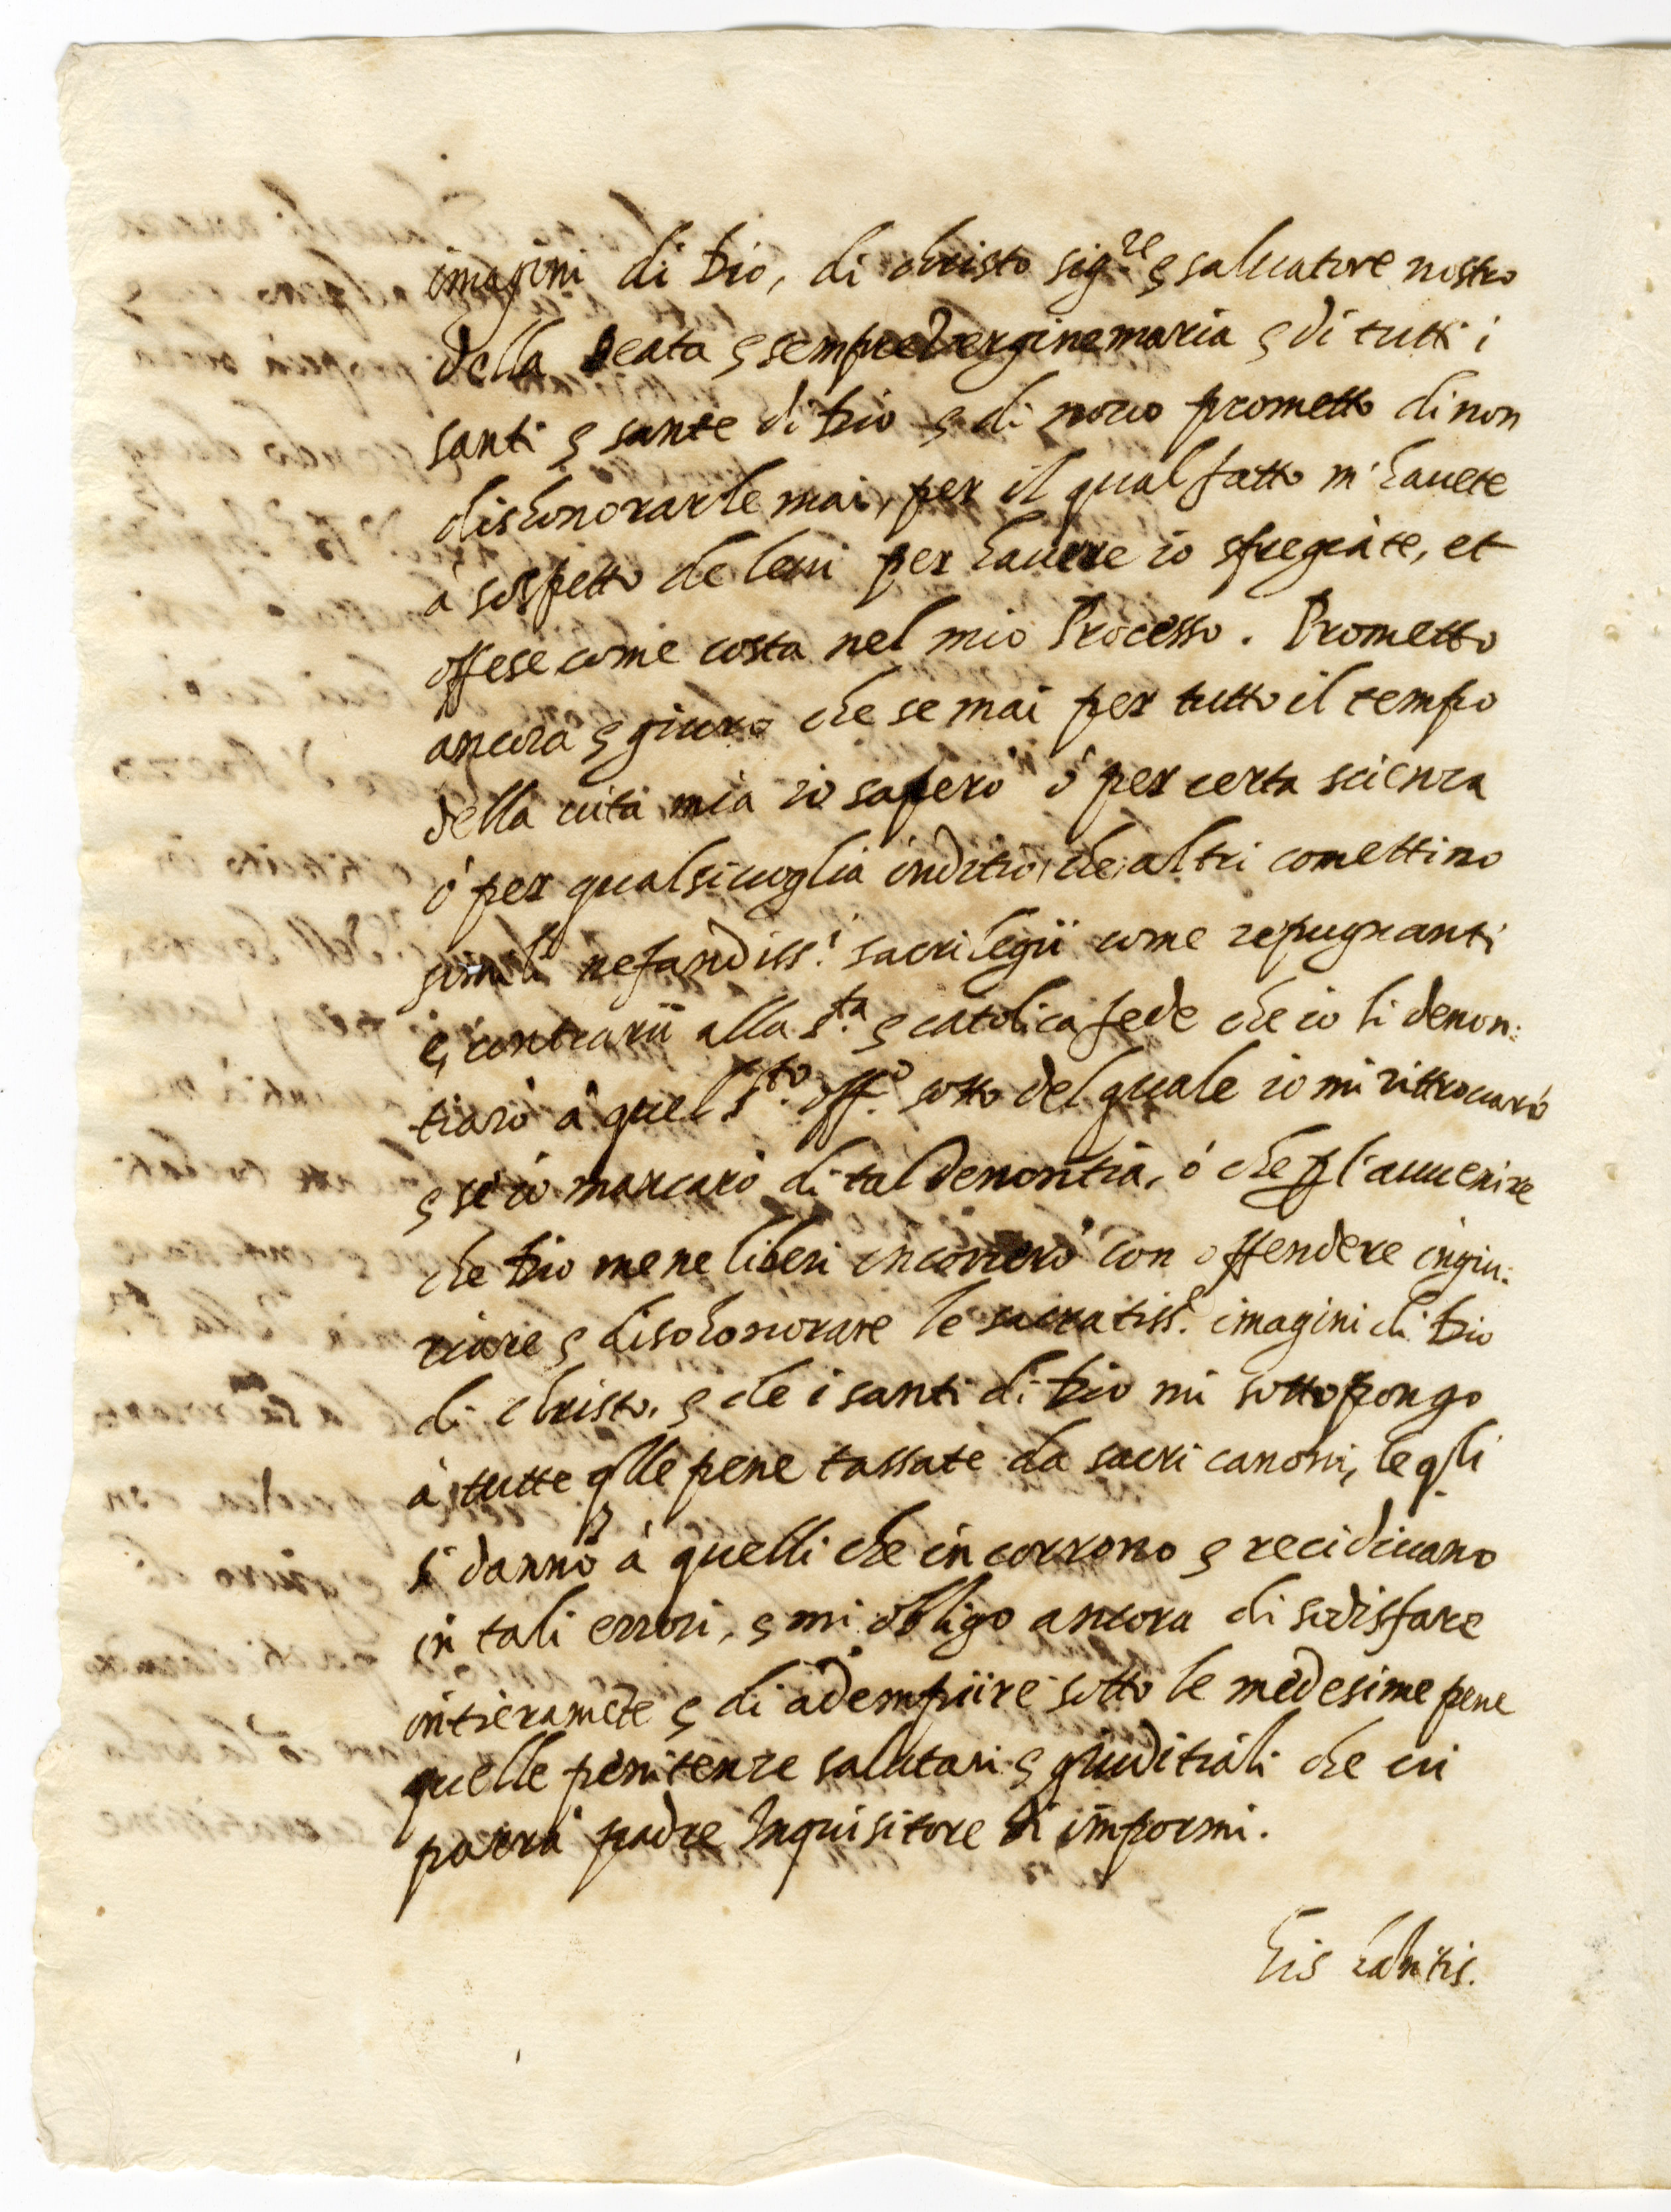 imagini di Dio, di christo sig.re e saluatore nostro
della Beata e sempre Vergine maria e di tutti i
santi e sante di Dio e di nouo prometto di non
dishonorarle mai, per il qual fatto m'hauete
à sospetto de leui per hauere io sfregiate, et
offese come costa nel mio Processo. Prometto
ancora e giuro che se mai per tutto il tempo
della uita mia io saperò ò per certa scienza
ò per qualsiuoglia inditio che altri comettino
simili nefandiss.i sacrilegii come repugnanti
e, contrarii alla s.ta e catolica fede che io li denon:
tiarò à quel s.to off.o sotto del quale io mi rittrouarò
e se io mancarò di tal denontia, ò che p l'auuenire
che Dio me ne liberi incorrerò con offendere ingiu:
riare e disohonorare le sacratiss.e imagini di Dio
di christo, e de i santi di Dio mi sottopongo
à tutte qlle pene tassate da sacri canoni, le qli
si danno à quelli che incorrono e recidiuano
in tali errori, e mi obligo ancora di sodisfare
intieramēte e di adempiire sotto le medesime pene
quelle penitenze salutari e giuditiali che ui
parrà padre Inquisitore di impormi.
his habitis.